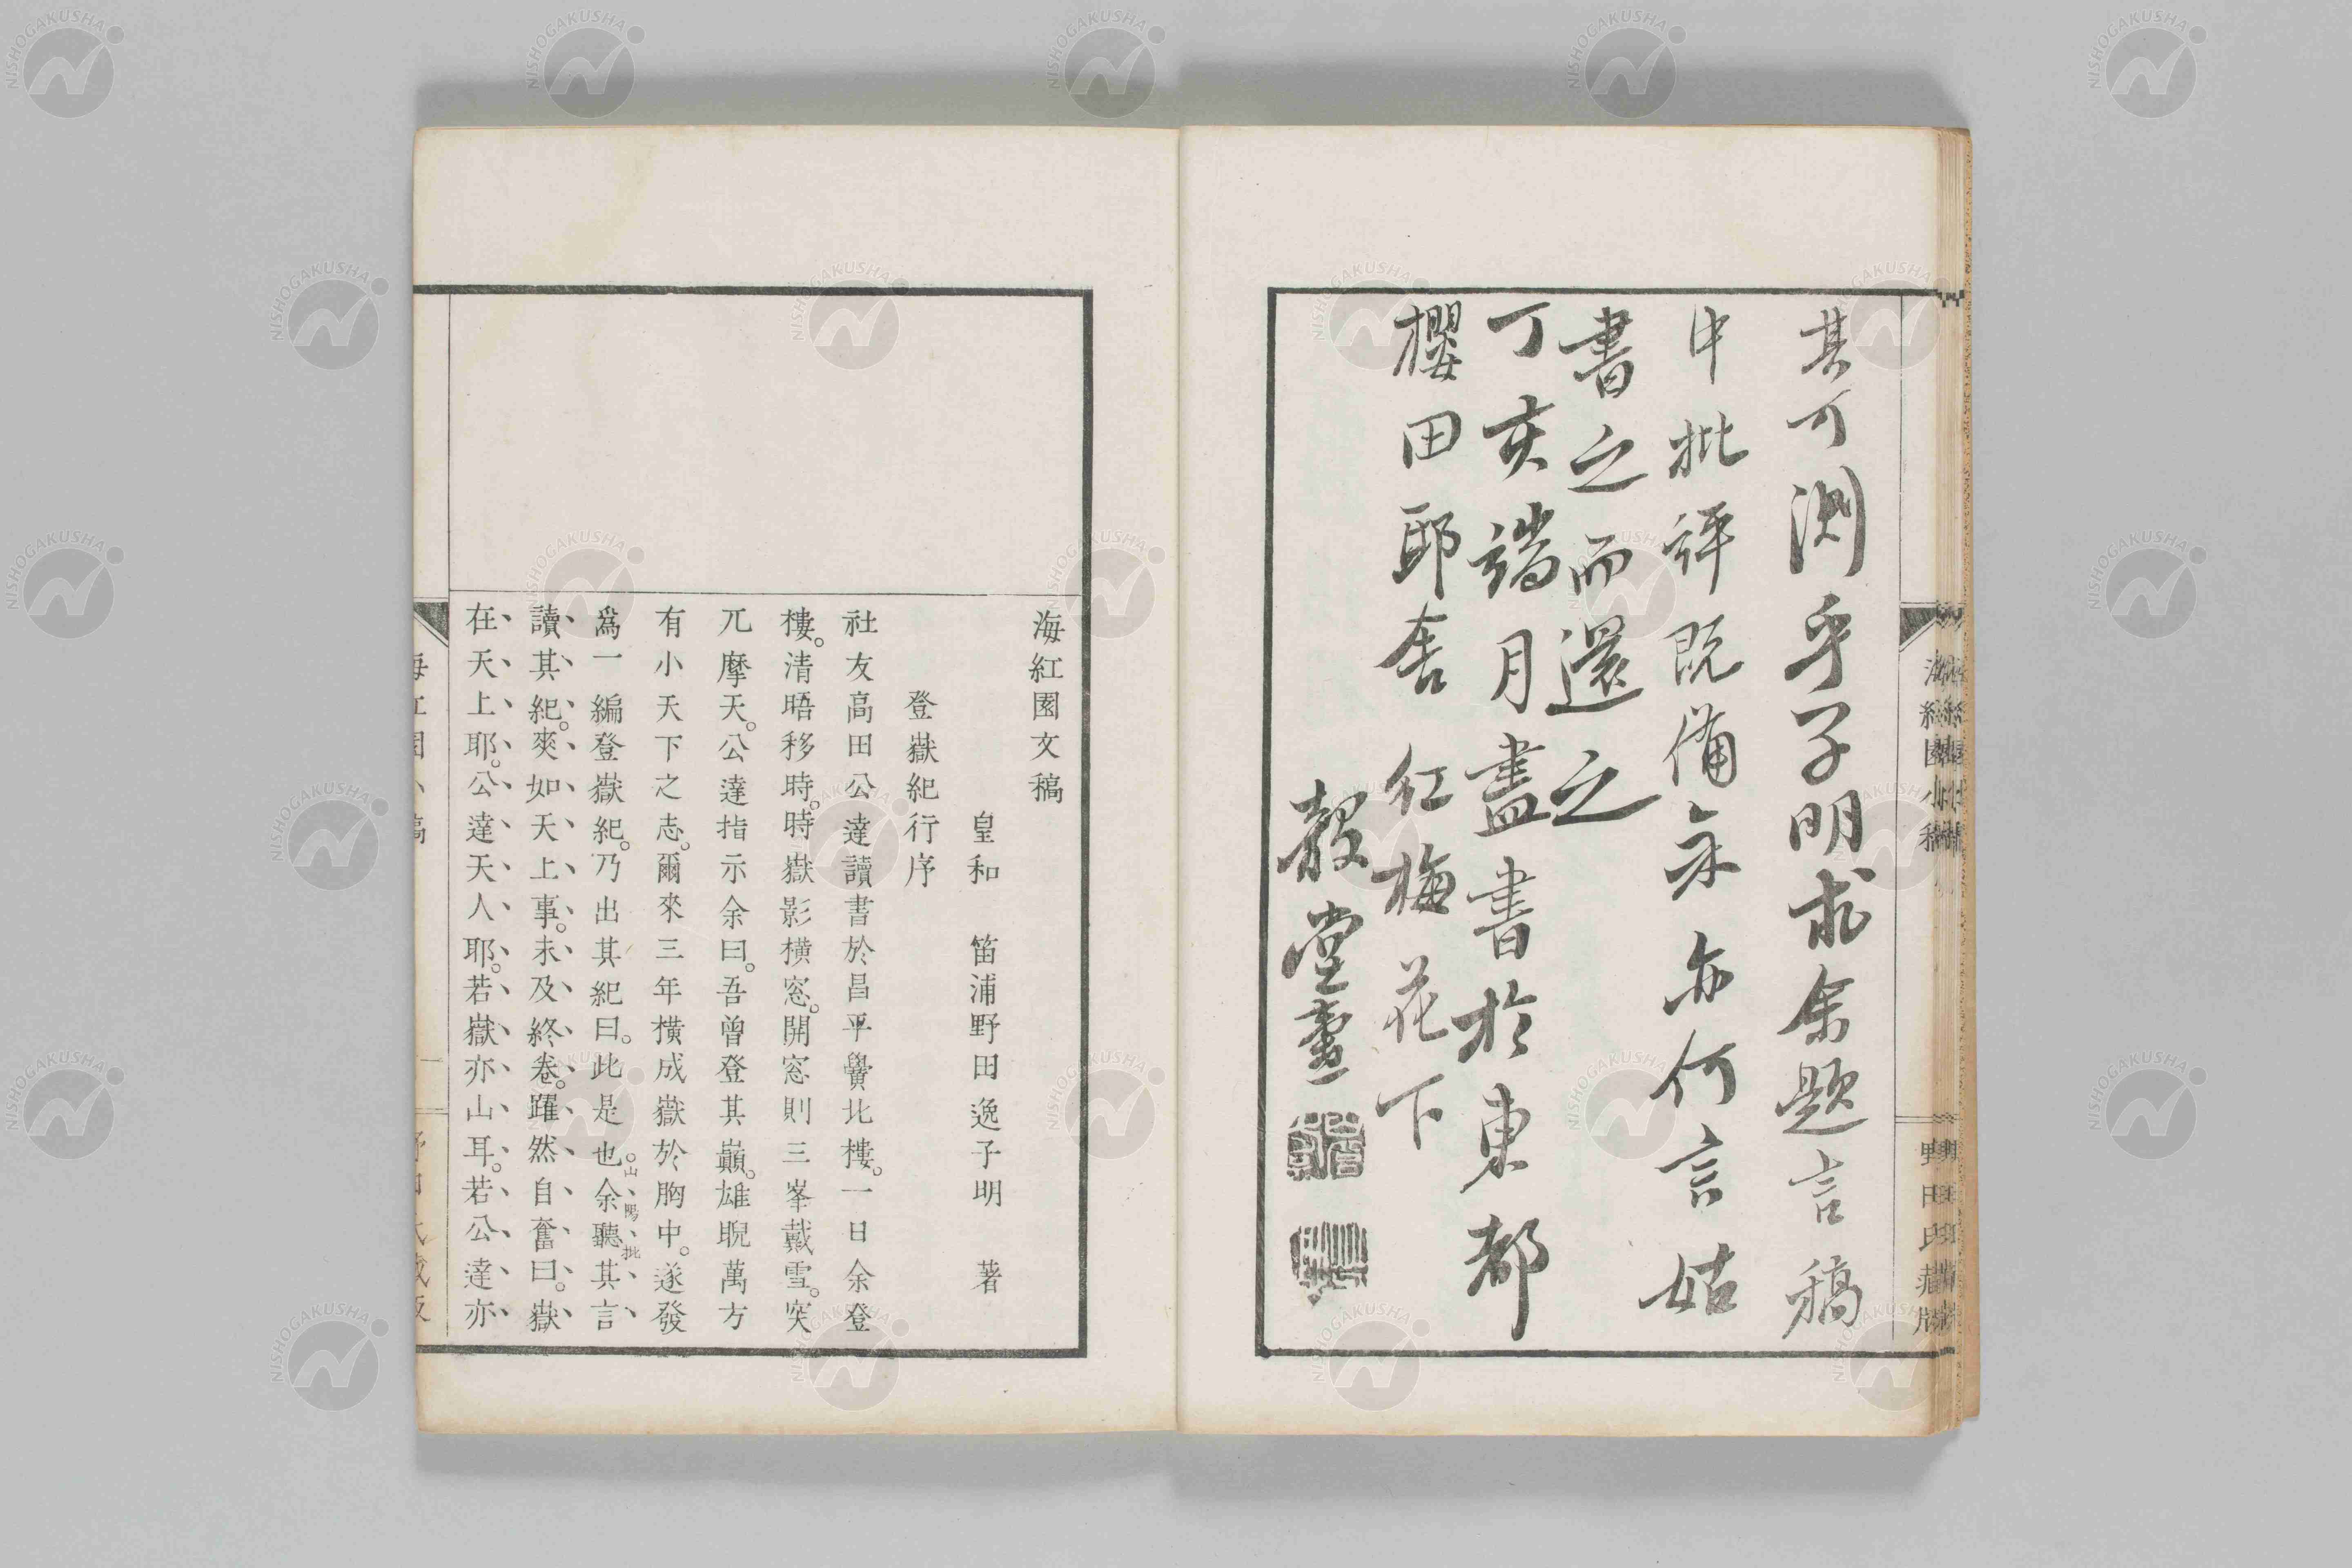 其可測乎子明求余題言稿
中批評既備余亦何言姑
書之而還之
丁亥端月盡書於東都
櫻田邸舍紅梅花下
穀堂燾
海紅園小稿
野田氏藏版
海紅園文稿
皇和 笛浦野田逸子明 著
登嶽紀行序
社友高田公達讀書於昌平黌北樓。一日余登
樓。清晤移時。時嶽影橫窓。開窓則三峯戴雪。突
兀摩天。公達指示余曰。吾曾登其巓。雄睨萬方
有小天下之志。爾來三年橫成嶽於胸中。遂發
爲一編登嶽紀。乃出其紀曰。此是也。余聽其言
山陽批
讀其紀。爽如天上事。未及終卷。躍然自奮曰。嶽
在天上耶。公達天人耶。若嶽亦山耳。若公達亦
NISHOGAKUSHA